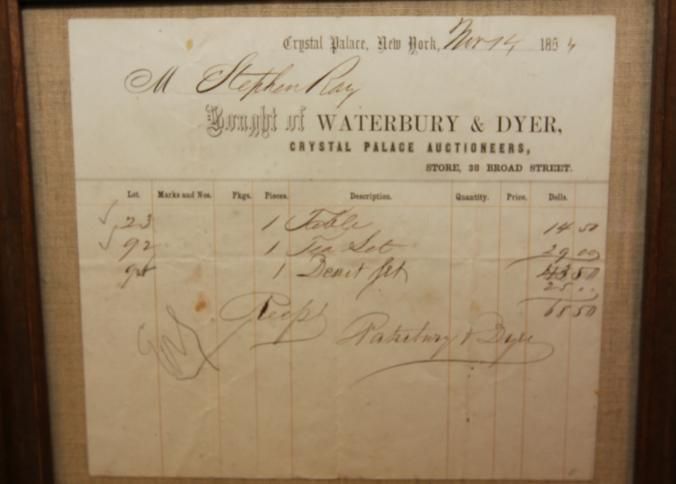 Crystal Palace, New York, Nov 14, 1854
M Stephen Ray
Bought of WATERBURY & DYER,
CRYSTAL PALACE AUCTIONEERS,
STORE, 38 BROAD STREET.
Lot. Marks and Nos. Pkgs. Pieces. Description. Quantity. Price. Dolls.
23 1 Table 14 50
92 1 Tea Set 29 00
1 Set 43 50
25 00
68 50
Waterbury & Dyer